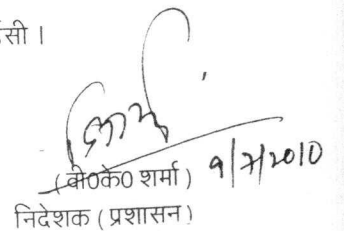 सी ।
(वी0के0 शर्मा) 9/7/2010
निदेशक ( प्रशासन )